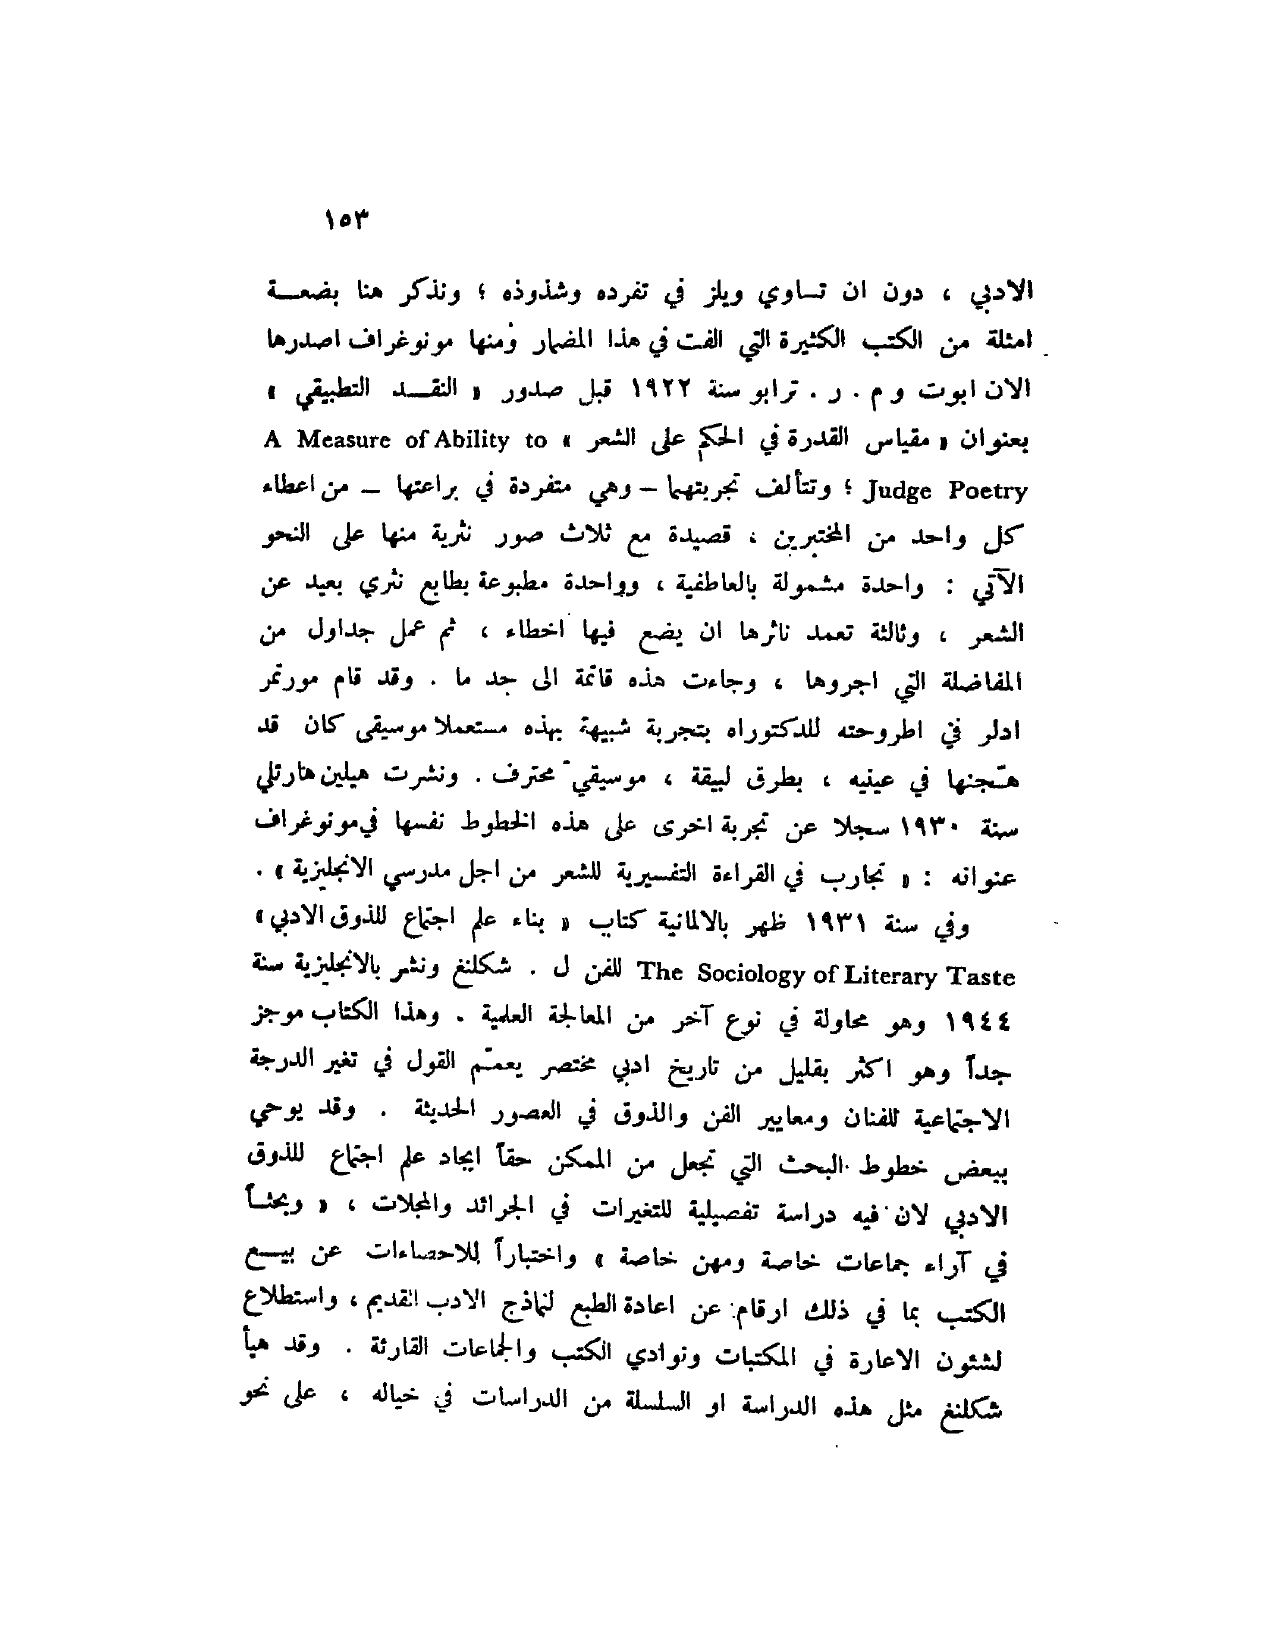 ١٥٣
الادبي ، دون ان تساوي ويلز في تفرده وشذوذه ؛ ونذكر هنا بضعة
امثلة من الكتب الكثيرة التي الفت في هذا المضمار ومنها مونوغراف اصدرها
الان ابوت و م . ر . ترابو سنة ١٩٢٢ قبل صدور « النقد التطبيقي »
بعنوان « مقياس القدرة في الحكم على الشعر » A Measure of Ability to
Judge Poetry ؛ وتتألف تجربتهما – وهي متفردة في براعتها – من اعطاء
كل واحد من المختبرين ، قصيدة مع ثلاث صور نثرية منها على النحو
الآتي : واحدة مشمولة بالعاطفية ، وواحدة مطبوعة بطابع نثري بعيد عن
الشعر ، وثالثة تعمد ناثرها ان يضع فيها اخطاء ، ثم عمل جداول من
المفاضلة التي اجروها ، وجاءت هذه قاتمة الى حد ما . وقد قام مورتمر
ادلر في اطروحته للدكتوراه بتجربة شبيهة بهذه مستعملا موسيقى كان قد
هجّنها في عينيه ، بطرق لبيقة ، موسيقي محترف . ونشرت هيلين هارتلي
سنة ١٩٣٠ سجلا عن تجربة اخرى على هذه الخطوط نفسها في مونوغراف
عنوانه : « تجارب في القراءة التفسيرية للشعر من اجل مدرسي الانجليزية » .
وفي سنة ١٩٣١ ظهر بالالمانية كتاب « بناء علم اجتماع للذوق الادبي »
The Sociology of Literary Taste للفن ل . شكلنغ ونشر بالانجليزية سنة
١٩٤٤ وهو محاولة في نوع آخر من المعالجة العلمية . وهذا الكتاب موجز
جداً وهو اكثر بقليل من تاريخ ادبي مختصر يعمّم القول في تغير الدرجة
الاجتماعية للفنان ومعايير الفن والذوق في العصور الحديثة . وقد يوحي
ببعض خطوط البحث التي تجعل من الممكن حقاً ايجاد علم اجتماع للذوق
الادبي لان فيه دراسة تفصيلية للتغيرات في الجرائد والمجلات ، « وبحثاً
في آراء جماعات خاصة ومهن خاصة » واختباراً للاحصاءات عن بيع
الكتب بما في ذلك ارقام عن اعادة الطبع لنماذج الادب القديم ، واستطلاع
لشئون الاعارة في المكتبات ونوادي الكتب والجماعات القارئة . وقد هيأ
شكلنغ مثل هذه الدراسة او السلسلة من الدراسات في خياله ، على نحو